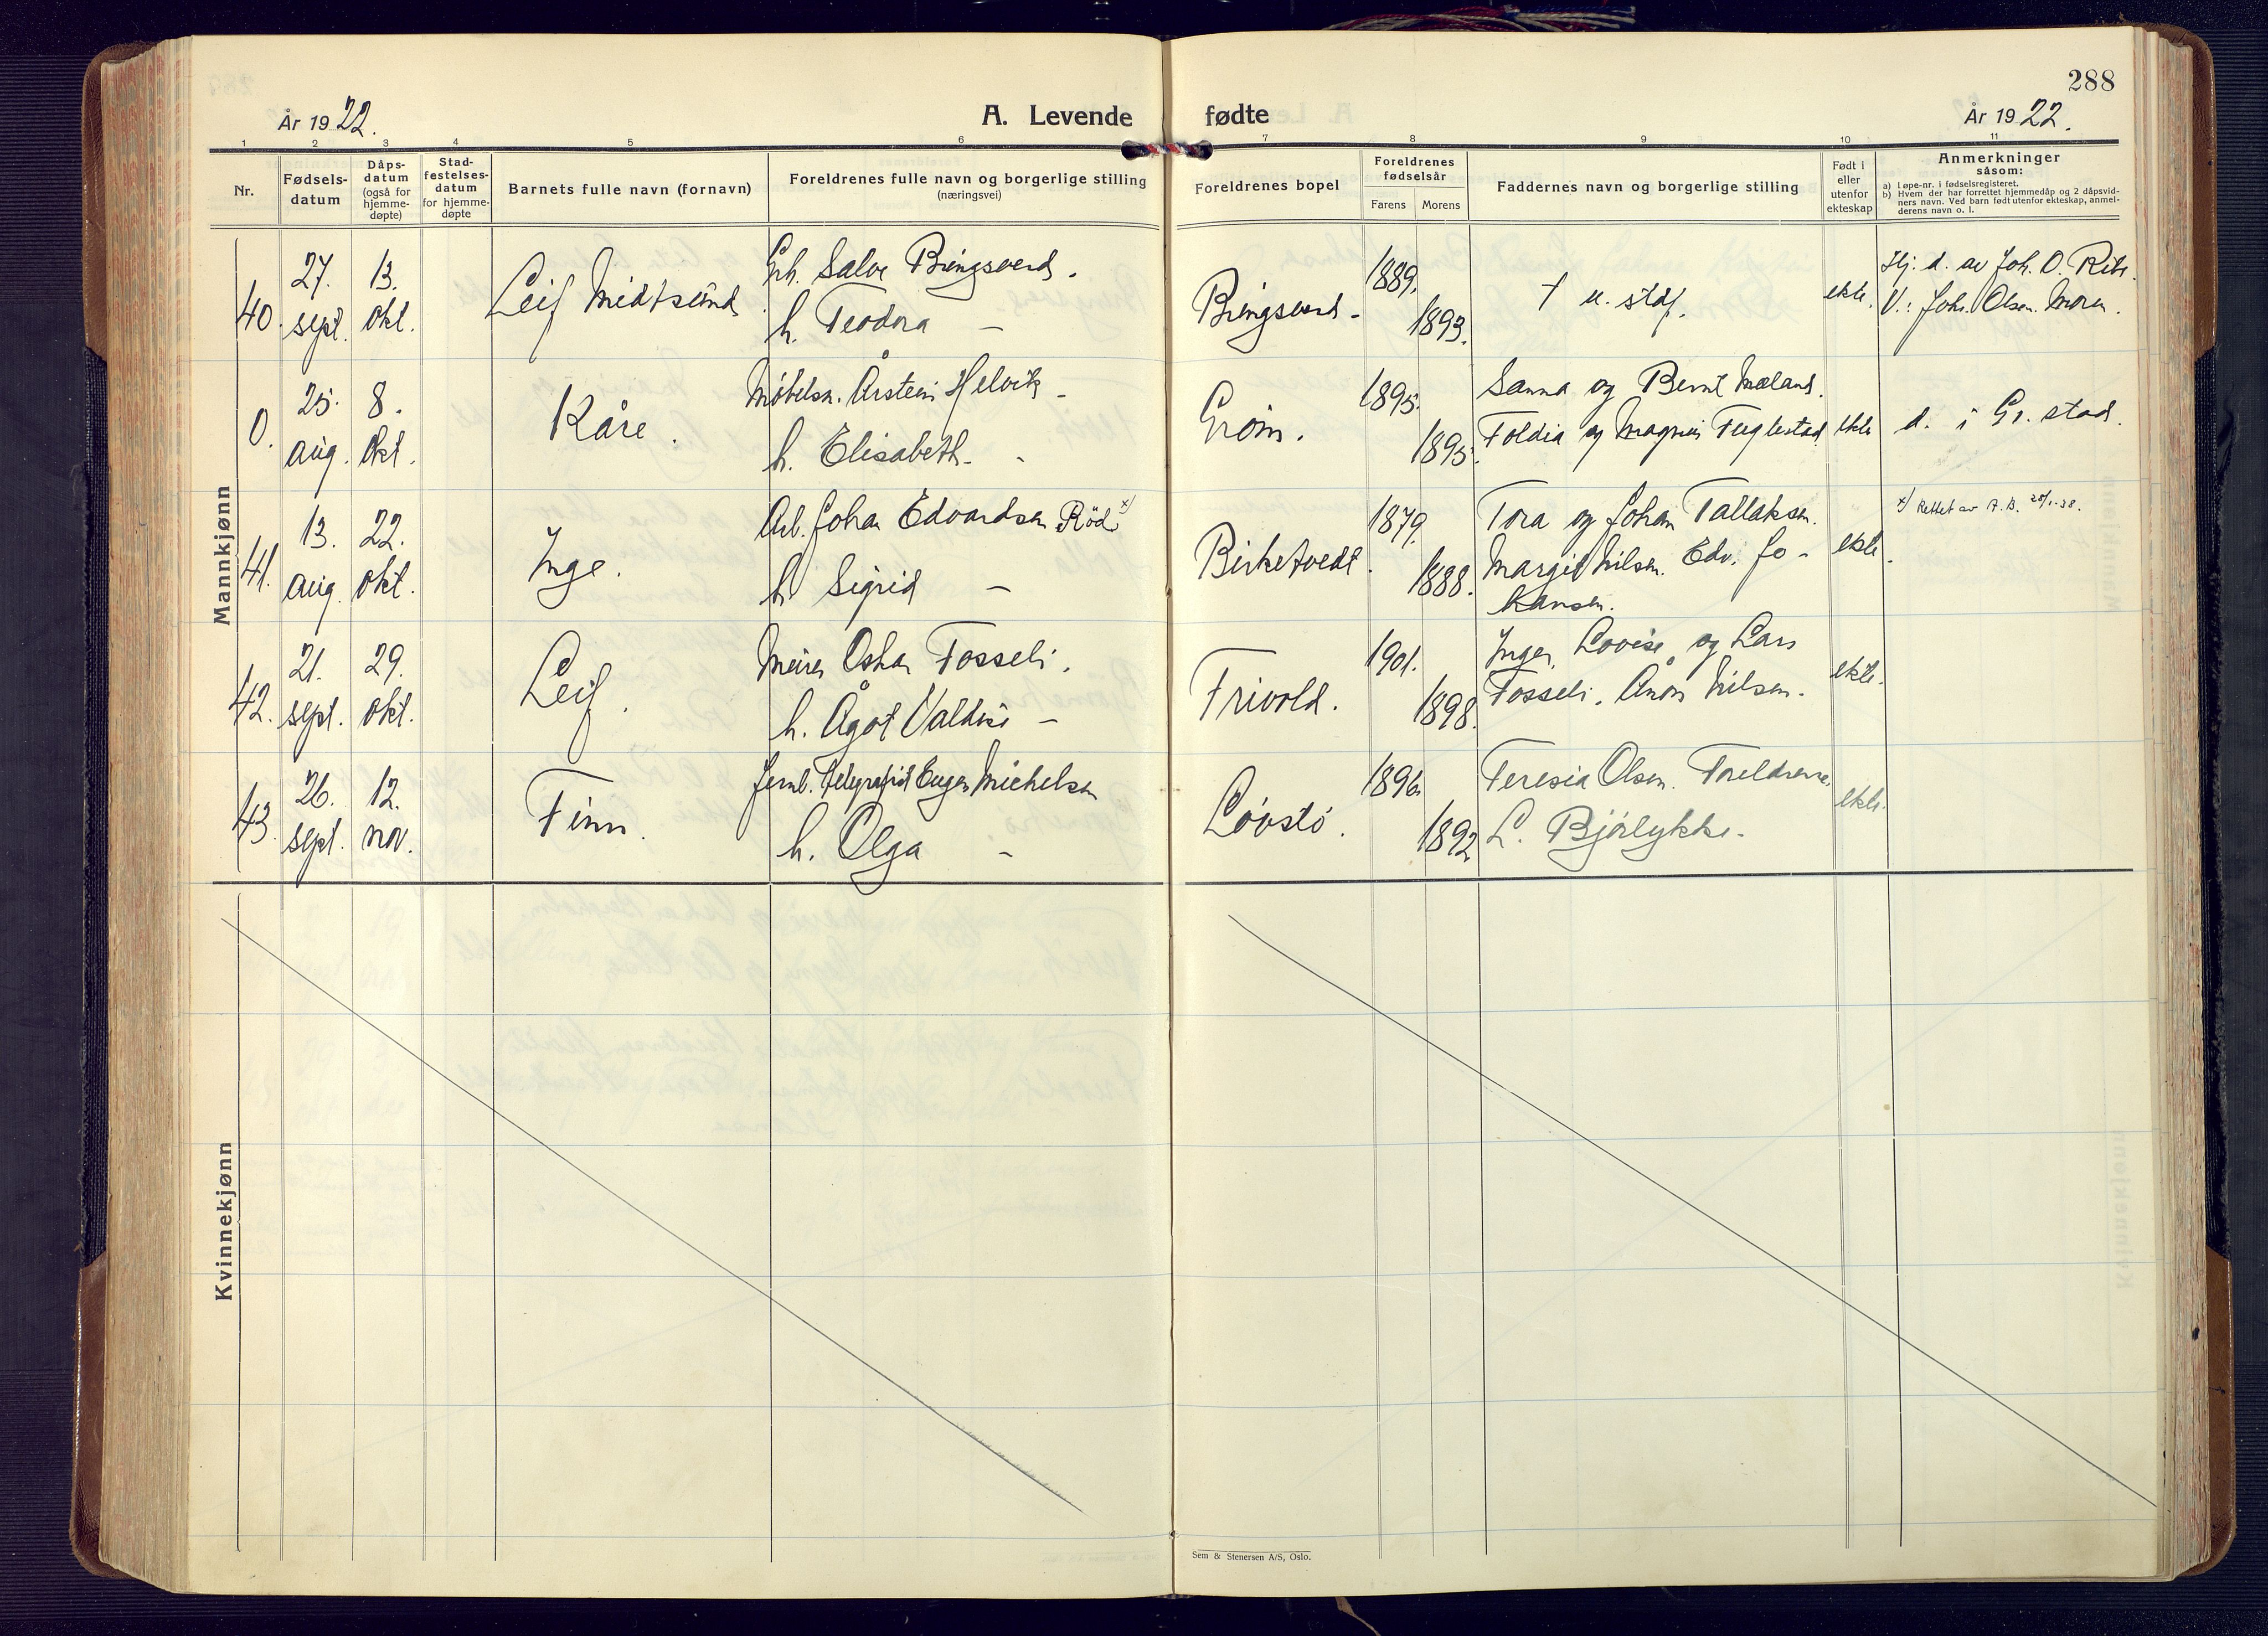 288
År 1922.
A. Levende fødte
År 1922.
1 2 3 4 5 6 7 8 9 10 11
Nr.
Fødsels-
datum
Dåps-
datum
(også for
hjemme-
døpte)
Stad-
festelses-
datum
for hjemme-
døpte
Barnets fulle navn (fornavn)
Foreldrenes fulle navn og borgerlige stilling
(næringsvei)
Foreldrenes bopel
Foreldrenes
fødselsår
Farens Morens
Faddernes navn og borgerlige stilling
Født i
eller
utenfor
ekteskap
Anmerkninger
såsom:
a) Løpe-nr. i fødselsregisteret.
b) Hvem der har forrettet hjemmedåp og 2 dåpsvid-
ners navn. Ved barn født utenfor ekteskap, anmel-
derens navn o. l.
Mannkjønn
40.
27.
sept.
13.
okt.
Leif Midtsund
Grh. Salve Bringsverd.
h. Teodora –
Bringsverd.
1889.
1893.
† u. stdf.
ekte.
Hj. d. av Joh. O. Ribe.
V.: Joh. Olsen. Moren.
0.
25.
aug.
8.
okt.
Kåre.
Møbelsn. Årstein Helvik –
h. Elisabeth –
Grøm.
1895.
1895.
Sanna og Bernt Mæland.
Toldia og Magnus Fuglestad
ekte
d. i Gr. stad.
41.
13.
aug.
22.
okt.
Inge.
Arb. Johan Edvardsen Röd x)
h. Sigrid –
Birketvedt.
1879.
1888.
Tora og Johan Tallaksen.
Margit Nilsen. Edv. Jo-
hansen.
ekte.
x) Rettet av A.B. 28/1-38.
42.
21.
sept.
29.
okt.
Leif.
Meier Oskar Fosseli.
h. Ågot Valdisi –
Frivold.
1901.
1898.
Inger, Lovise og Lars
Fosseli. Ånon Nilsen.
ekte.
43.
26.
sept.
12.
nov.
Finn.
Jernb. telegrafist Eugen Michelsen
h. Olga –
Løvstø.
1896.
1892
Teresia Olsen. Foreldrene,
L. Bjørlykke.
ekte.
Kvinnekjønn
Sem & Stenersen A/S, Oslo.